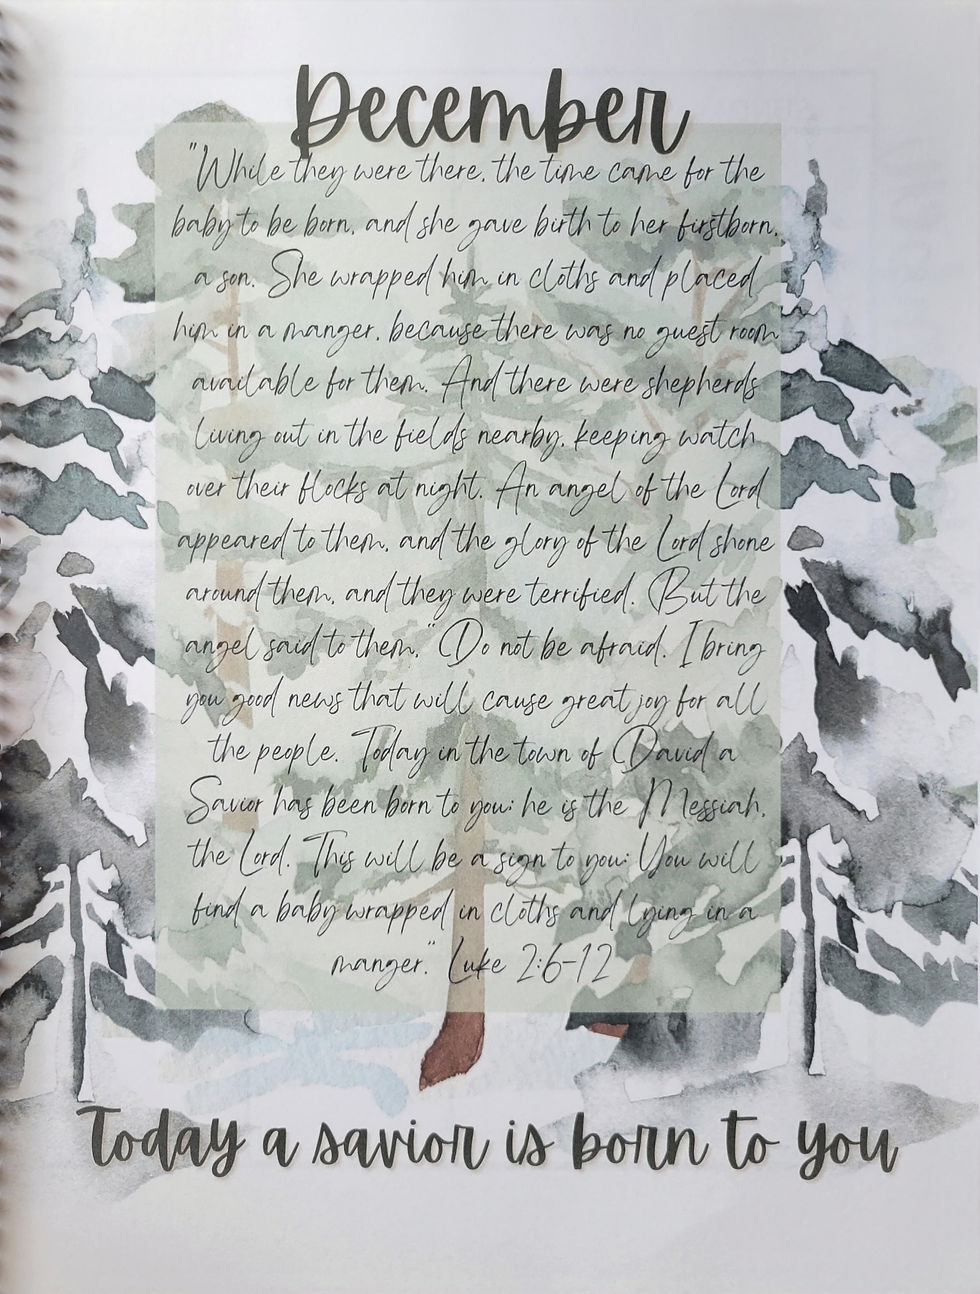 December
"While they were there, the time came for the
baby to be born, and she gave birth to her firstborn,
a son. She wrapped him in cloths and placed
him in a manger, because there was no guest room
available for them. And there were shepherds
living out in the fields nearby, keeping watch
over their flocks at night. An angel of the Lord
appeared to them, and the glory of the Lord shone
around them, and they were terrified. But the
angel said to them, "Do not be afraid. I bring
you good news that will cause great joy for all
the people. Today in the town of David a
Savior has been born to you; he is the Messiah,
the Lord. This will be a sign to you: You will
find a baby wrapped in cloths and lying in a
manger." Luke 2:6-12
Today a savior is born to you